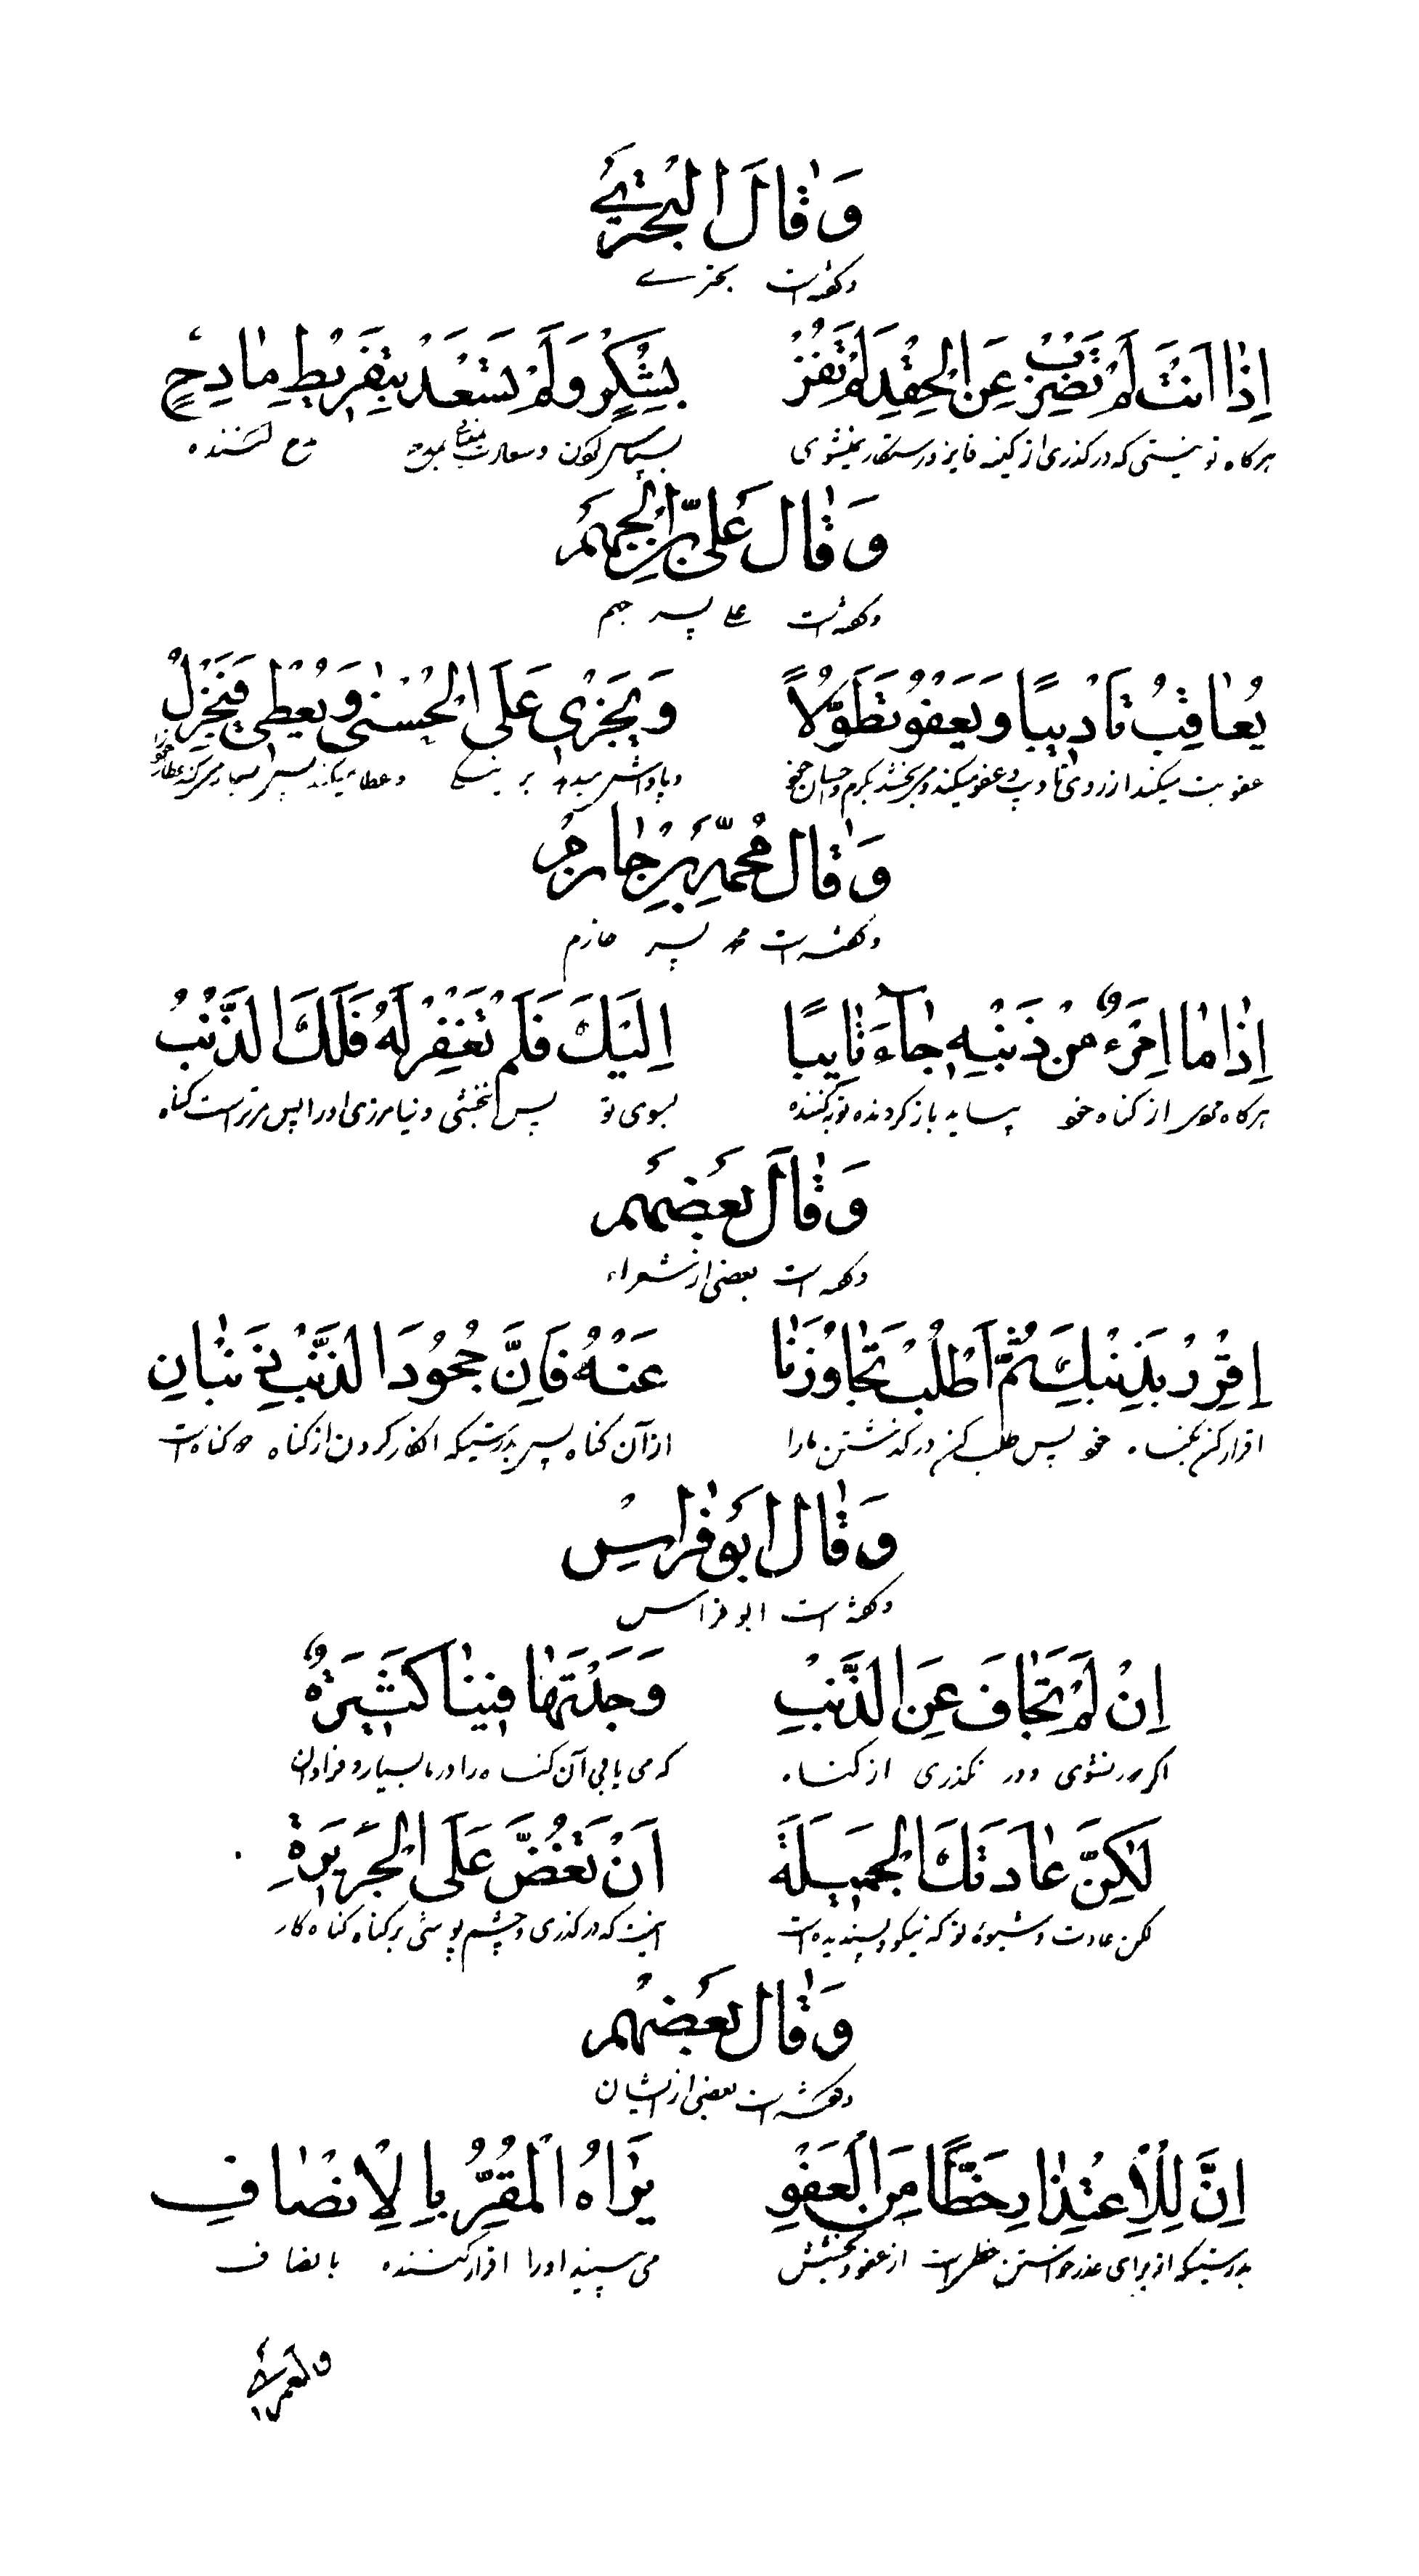 وَقالَ البُحتُرِيُّ
وگفته است بحتری
اِذٰا اَنْتَ لَمْ تَضْرِبْ عَنِ الْحِقْدِ لَمْ تَفُزْ بِشُكْرٍ وَلَمْ تَسْعَدْ بِتَقْرِيْظِ مٰادِحٍ
هرگاه تو نیستی که در گذری از کینه فایز و رستگار نمیشوی بسپاس گفتن و سعادت مدح کننده
وَقٰالَ عَلِيُّ بْنُ الْجَهْمِ
وگفته است علی پسر جهم
يُعٰاقِبُ تَأدِيبًا وَيَعْفُو تَطَوُّلاً وَيَجْزِي عَلَى الْحُسْنىٰ وَيُعْطِي فَيُجْزِلُ
عقوبت میکند از روی تادیب و عفو میکند و میبخشد بکرم و احسان خود وپاداش میدهد بر نیکی و عطا میکند پس بسیار میکند عطای خود را
وَقٰالَ مُحَمَّدُ بْنُ حٰازِمٍ
وگفته است محمد پسر حازم
اِذٰا مَا امْرَءٌ مِنْ ذَنْبِهِ جٰآءَ تٰايِبًا اِلَيْكَ فَلَمْ تَغْفِرْ لَهُ فَلَكَ الذَّنْبُ
هرگاه مردی از گناه خود بیاید بازگردنده توبه کننده بسوی تو پس نبخشی و نیامرزی او را پس مر تراست گناه
وَقٰالَ بَعْضُهُمْ
وگفته است بعضی از شعراء
اِقْرِرْ بِذَنْبِكَ ثُمَّ اطْلُبْ تَجٰاوُزَنٰا عَنْهُ فَاِنَّ جُحُودَ الذَّنْبِ ذَنْبٰانِ
اقرار کن بگناه خود پس طلب کن در گذشتن ما را از آن گناه پس بدرستیکه انکار کردن از گناه دو گناه است
وَقٰالَ اَبُو فِرٰاسْ
وگفته است ابو فراس
اِنْ لَمْ تَجٰافَ عَنِ الذَّنْبِ وَجَدْتَهٰا فِينٰا كَثِيرَةٌ
اگر دور نشوی و در نگذری از گناه که می یابی آن گناه را در ما بسیار و فراوان
لٰكِنَّ عٰادَتَكَ الْجَمِيلَةَ اَنْ تَغُضَّ عَلَى الْجَرِيرَةِ
لکن عادت و شیوه تو که نیکو و پسندیده است اینست که در گذری و چشم پوشی بر گناه گناه کار
وَقٰالَ بَعْضُهُمْ
وگفته است بعضی از ایشان
اِنَّ لِلْاِعْتِذٰارِ حَظًّا مِنَ الْعَفْوِ يَرٰاهُ الْمُقِرُّ بِالْاِنْصٰافِ
بدرستیکه از برای عذر خواستن حظ است از عفو و بخشش می بیند او را اقرار کننده بانصاف
ولعمری